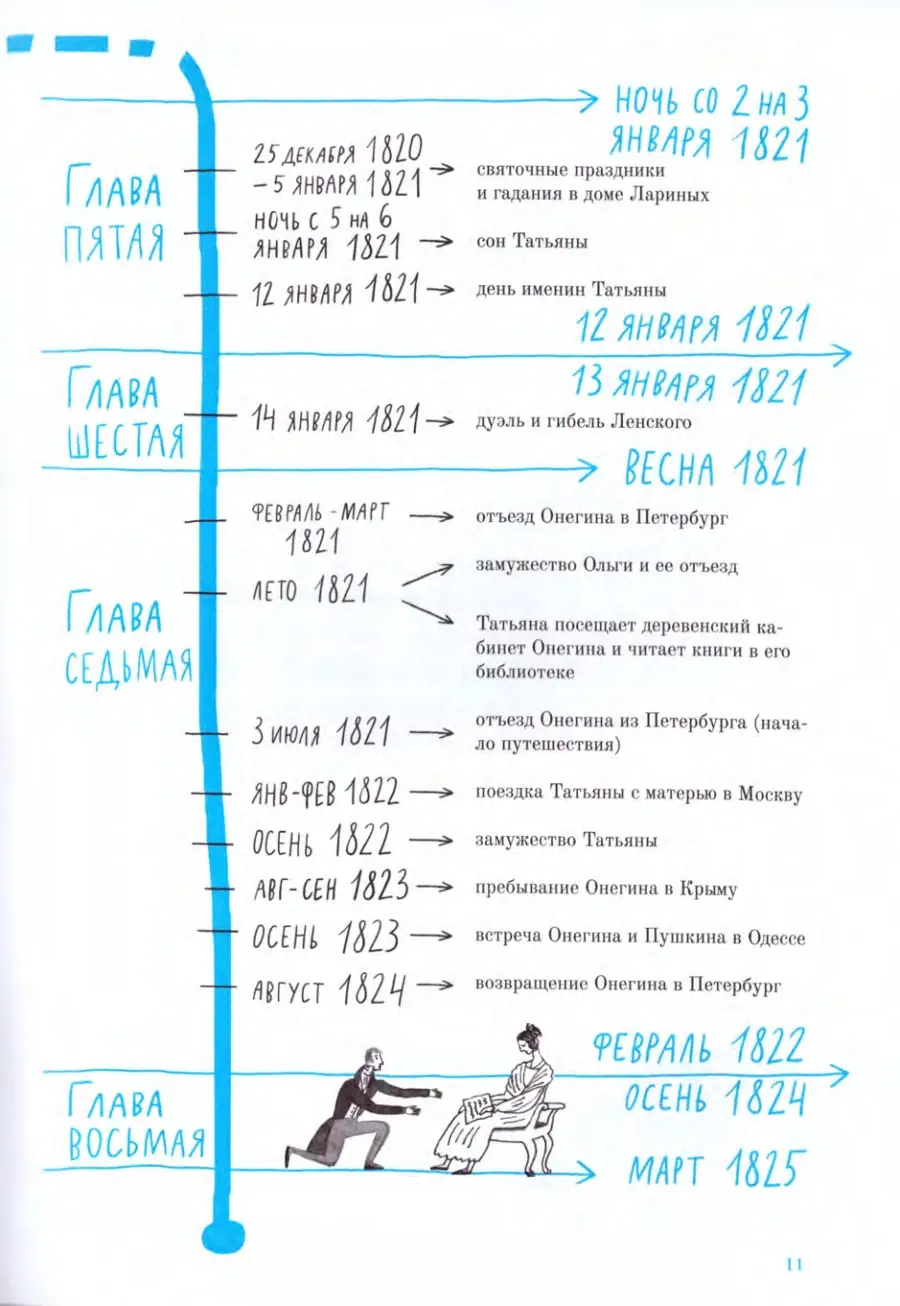 НОЧЬ СО 2 НА 3
ЯНВАРЯ 1821
ГЛАВА
ПЯТАЯ
25 ДЕКАБРЯ 1820
– 5 ЯНВАРЯ 1821
святочные праздники
и гадания в доме Лариных
НОЧЬ С 5 НА 6
ЯНВАРЯ 1821
сон Татьяны
12 ЯНВАРЯ 1821
день именин Татьяны
12 ЯНВАРЯ 1821
13 ЯНВАРЯ 1821
ГЛАВА
ШЕСТАЯ
14 ЯНВАРЯ 1821
дуэль и гибель Ленского
ВЕСНА 1821
ГЛАВА
СЕДЬМАЯ
ФЕВРАЛЬ - МАРТ
1821
отъезд Онегина в Петербург
ЛЕТО 1821
замужество Ольги и ее отъезд
Татьяна посещает деревенский ка-
бинет Онегина и читает книги в его
библиотеке
3 ИЮЛЯ 1821
отъезд Онегина из Петербурга (нача-
ло путешествия)
ЯНВ-ФЕВ 1822
поездка Татьяны с матерью в Москву
ОСЕНЬ 1822
замужество Татьяны
АВГ-СЕН 1823
пребывание Онегина в Крыму
ОСЕНЬ 1823
встреча Онегина и Пушкина в Одессе
АВГУСТ 1824
возвращение Онегина в Петербург
ФЕВРАЛЬ 1822
ОСЕНЬ 1824
ГЛАВА
ВОСЬМАЯ
МАРТ 1825
11